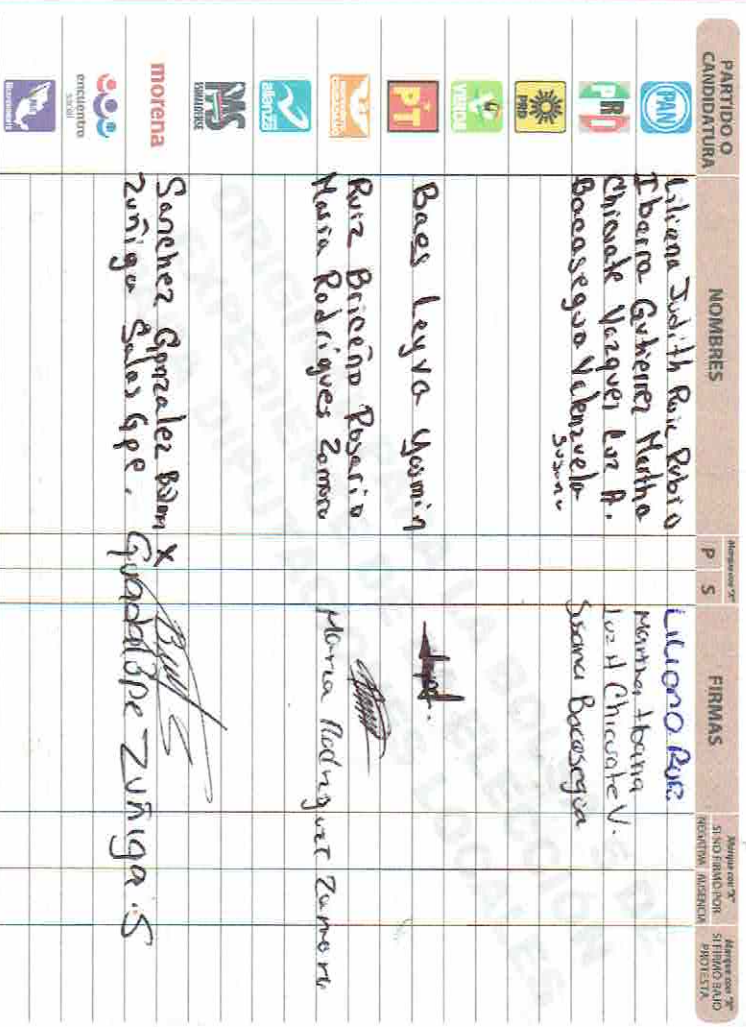 PARTIDO O CANDIDATURA
NOMBRES
Marque con "X"
P S
FIRMAS
Marque con "X" SI NO FIRMÓ POR
NEGATIVA AUSENCIA
Marque con "X" SI FIRMÓ BAJO PROTESTA
PAN Liliana Judith Ruiz Rubio Liliana Ruiz
Ibarra Gutierrez Martha Martha Ibarra
PRI Chicuate Vazquez Luz A. Luz A Chicuate V.
Bacasegua Valenzuela Susana Susana Bacasegua
PRD
VERDE
PT Baes Leyva Yasmin
Ruiz Briceño Rosario
Maria Rodrigues Zamora Maria Rodriguez Zamora
alianza
PAS SINALOENSE
morena Sanchez Gonzalez X
encuentro social Zuñiga Salas Gpe. Guadalupe Zuñiga .S
ORIGINAL PARA LA BOLSA DE
EXPEDIENTE DE LA ELECCIÓN
PARA DIPUTACIONES LOCALES